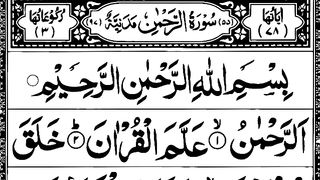 اٰیَاتُهَا (٧٨) (٥٥) سُوْرَةُ الرَّحْمٰنِ مَدَنِیَّةٌ (٩٧) رُكُوْعَاتُهَا (٣)
بِسْمِ اللهِ الرَّحْمٰنِ الرَّحِیْمِ
اَلرَّحْمٰنُ ۙ﴿١﴾ عَلَّمَ الْقُرْاٰنَ ؕ﴿٢﴾ خَلَقَ